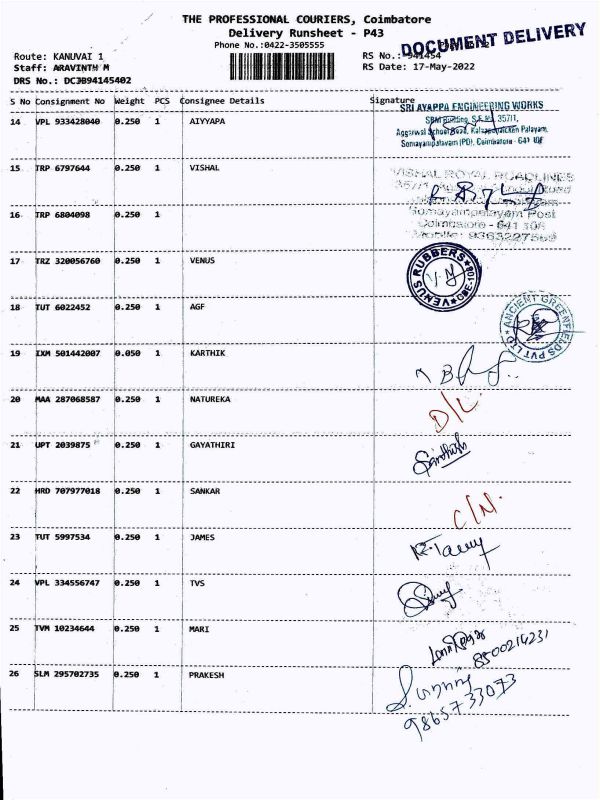 THE PROFESSIONAL COURIERS, Coimbatore
Delivery Runsheet - P43
Phone No.:0422-3505555
DOCUMENT DELIVERY
Route: KANUVAI 1
RS No.: 941454
Staff: ARAVINTH M
RS Date: 17-May-2022
DRS No.: DCJB94145402
S No Consignment No Weight PCS Consignee Details Signature
SRI AYAPPA ENGINEERING WORKS
14 VPL 933428040 0.250 1 AIYYAPA
Somayampalayam (PO), Coimbatore - 641 108
15 TRP 6797644 0.250 1 VISHAL
VISHAL ROYAL ROADLINES
16 TRP 6804098 0.250 1
Somayampalayam Post
Coimbatore - 641 108
17 TRZ 320056760 0.250 1 VENUS
VENUS RUBBERS
18 TUT 6022452 0.250 1 AGF
ANCIENT GREENFIELDS PVT LTD
19 IXM 501442007 0.050 1 KARTHIK
20 MAA 287068587 0.250 1 NATUREKA
D/L.
21 UPT 2039875 0.250 1 GAYATHIRI
Santhosh
22 HRD 707977018 0.250 1 SANKAR
C/N.
23 TUT 5997534 0.250 1 JAMES
24 VPL 334556747 0.250 1 TVS
25 TVM 10234644 0.250 1 MARI
8500214231
26 SLM 295702735 0.250 1 PRAKESH
9865733073